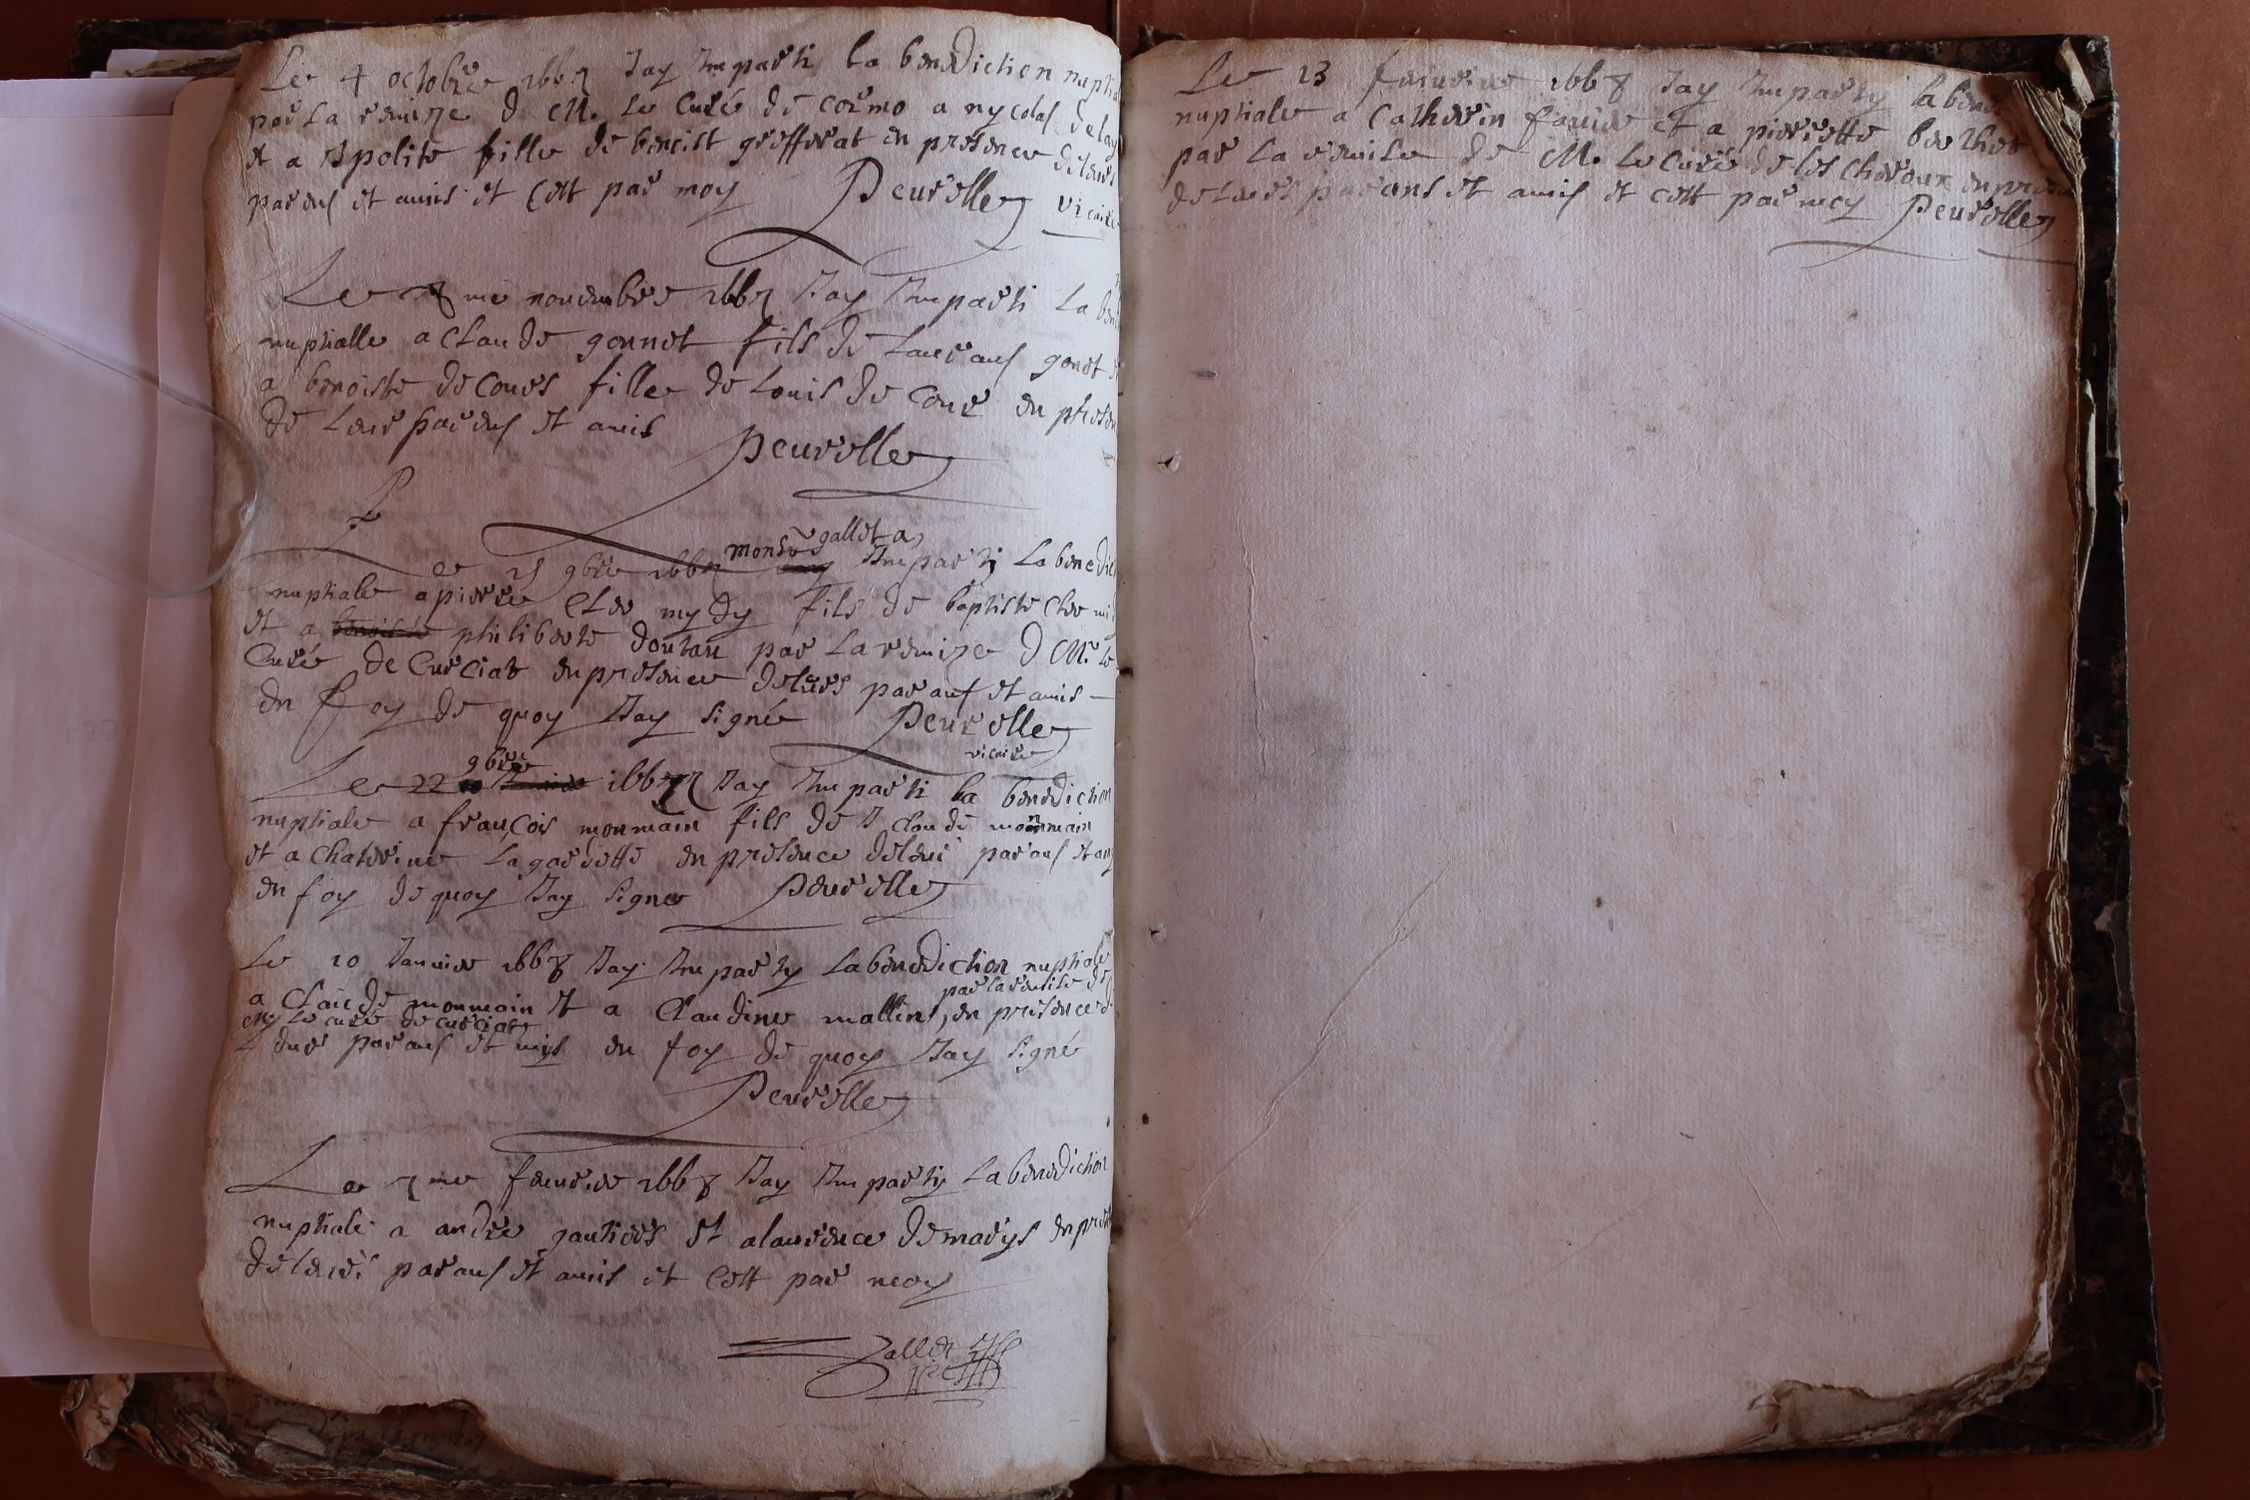 Le 4 octobre 1667 Jay Imparti la benediction nuptia
par La remize d M. Le Curé de cormo a nycolas delay
et a Ipolite fille de benoist greffierat en presence de leurs
parens et amis et Cest par moy Peurelle vicaire
Le 8 me nouembre 1667 Jay Imparti La ben
nuptialle a Claude gonnet fils de Laurans gonet et
a benoiste de Cours fille de Louis de Cour en presen
de Leur parens et amis Peurelle
monsr gallet a
Le 15 9bre 1667 Jay Imparti La benedic
nuptiale a pierre Clermydy fils de baptiste Clermi
et a benoiste philiberte doutau par La remize d Mr. le
Curé de Curciat en presence de leurs parans et amis
en foy de quoy Jay signé Peurelle
vicaire
9bre
Le 22 1667 Jay Imparti La benediction
nuptiale a françois monmain fils de Claude monmain
et a Chaterine Lagardette en presence de leur parans et amis
en foy de quoy Jay signe Peurelle
Le 10 Januier 1668 Jay Imparty La benediction nuptiale
par la remise de
a Claude monmain et a Claudine mallin, en presence d
M. le curé de curciat
Leur parans et amis en foy de quoy Jay signé
Peurelle
Le 7 me feurier 1668 Jay Imparty La benediction
nuptiale a andre gautiers et a laurence de marys en prese
de leurs parans et amis et Cest par moy
Gallet
Le 13 feurier 1668 Jay Imparty la bene
nuptiale a Catherin fauier et a pierrette berthet
par La remise de M. Le Curé de les Cheroux en presen
de Leurs parans et amis et Cest par moy Peurelle